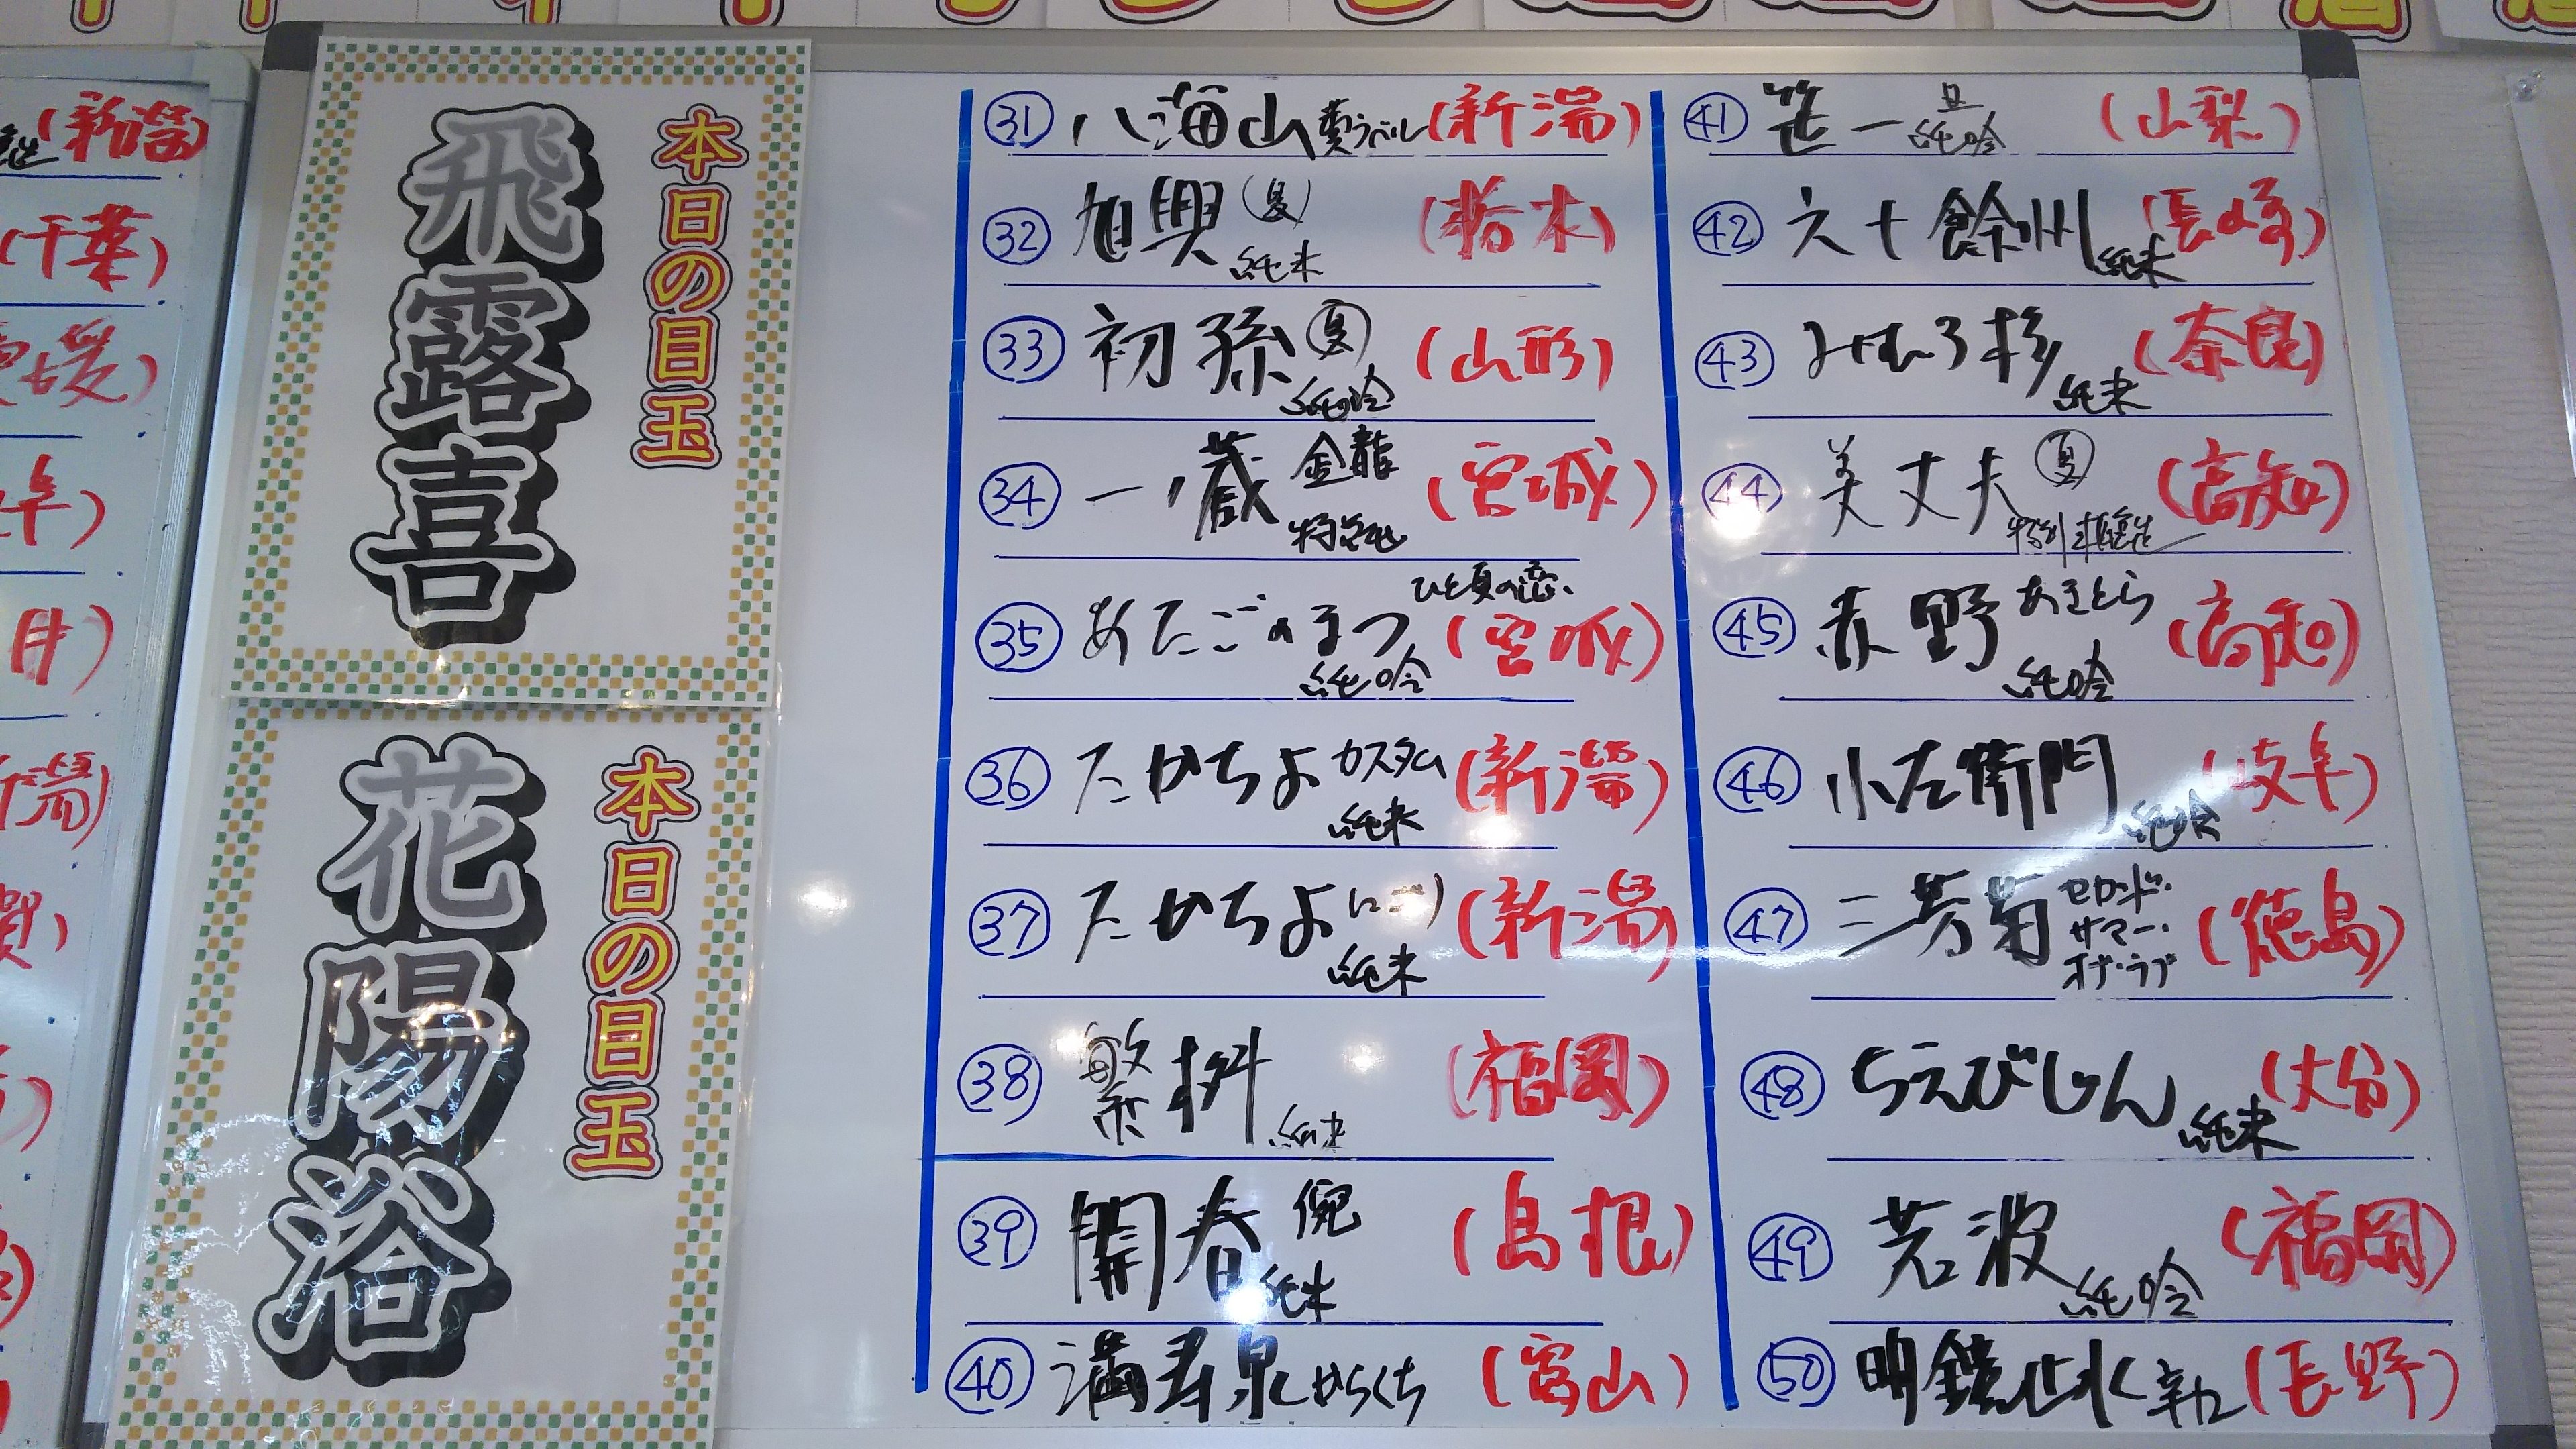 本日の目玉
飛露喜
本日の目玉
花陽浴
㉛ 八海山 黄ラベル (新潟)
㉜ 旭興 (夏) 純米 (栃木)
㉝ 初孫 夏 純吟 (山形)
㉞ 一ノ蔵 金龍 (宮城)
㉟ あたごのまつ ひと夏の恋 純吟 (宮城)
㊱ たかちよ カスタム 純米 (新潟)
㊲ たかちよ にごり 純米 (新潟)
㊳ 繁桝 純米 (福岡)
㊴ 開春 俔 純米 (島根)
㊵ 満寿泉 からくち (富山)
㊶ 笹一 旦 純吟 (山梨)
㊷ 六十餘州 純米 (長崎)
㊸ みむろ杉 純米 (奈良)
㊹ 美丈夫 夏 (高知)
㊺ 赤野 あきとら 純吟 (高知)
㊻ 小左衛門 純吟 (岐阜)
㊼ 三芳菊 セカンド・サマー・オブ・ラブ (徳島)
㊽ ちえびじん 純米 (大分)
㊾ 若波 純吟 (福岡)
㊿ 明鏡止水 辛口 (長野)
(新潟)
(千葉)